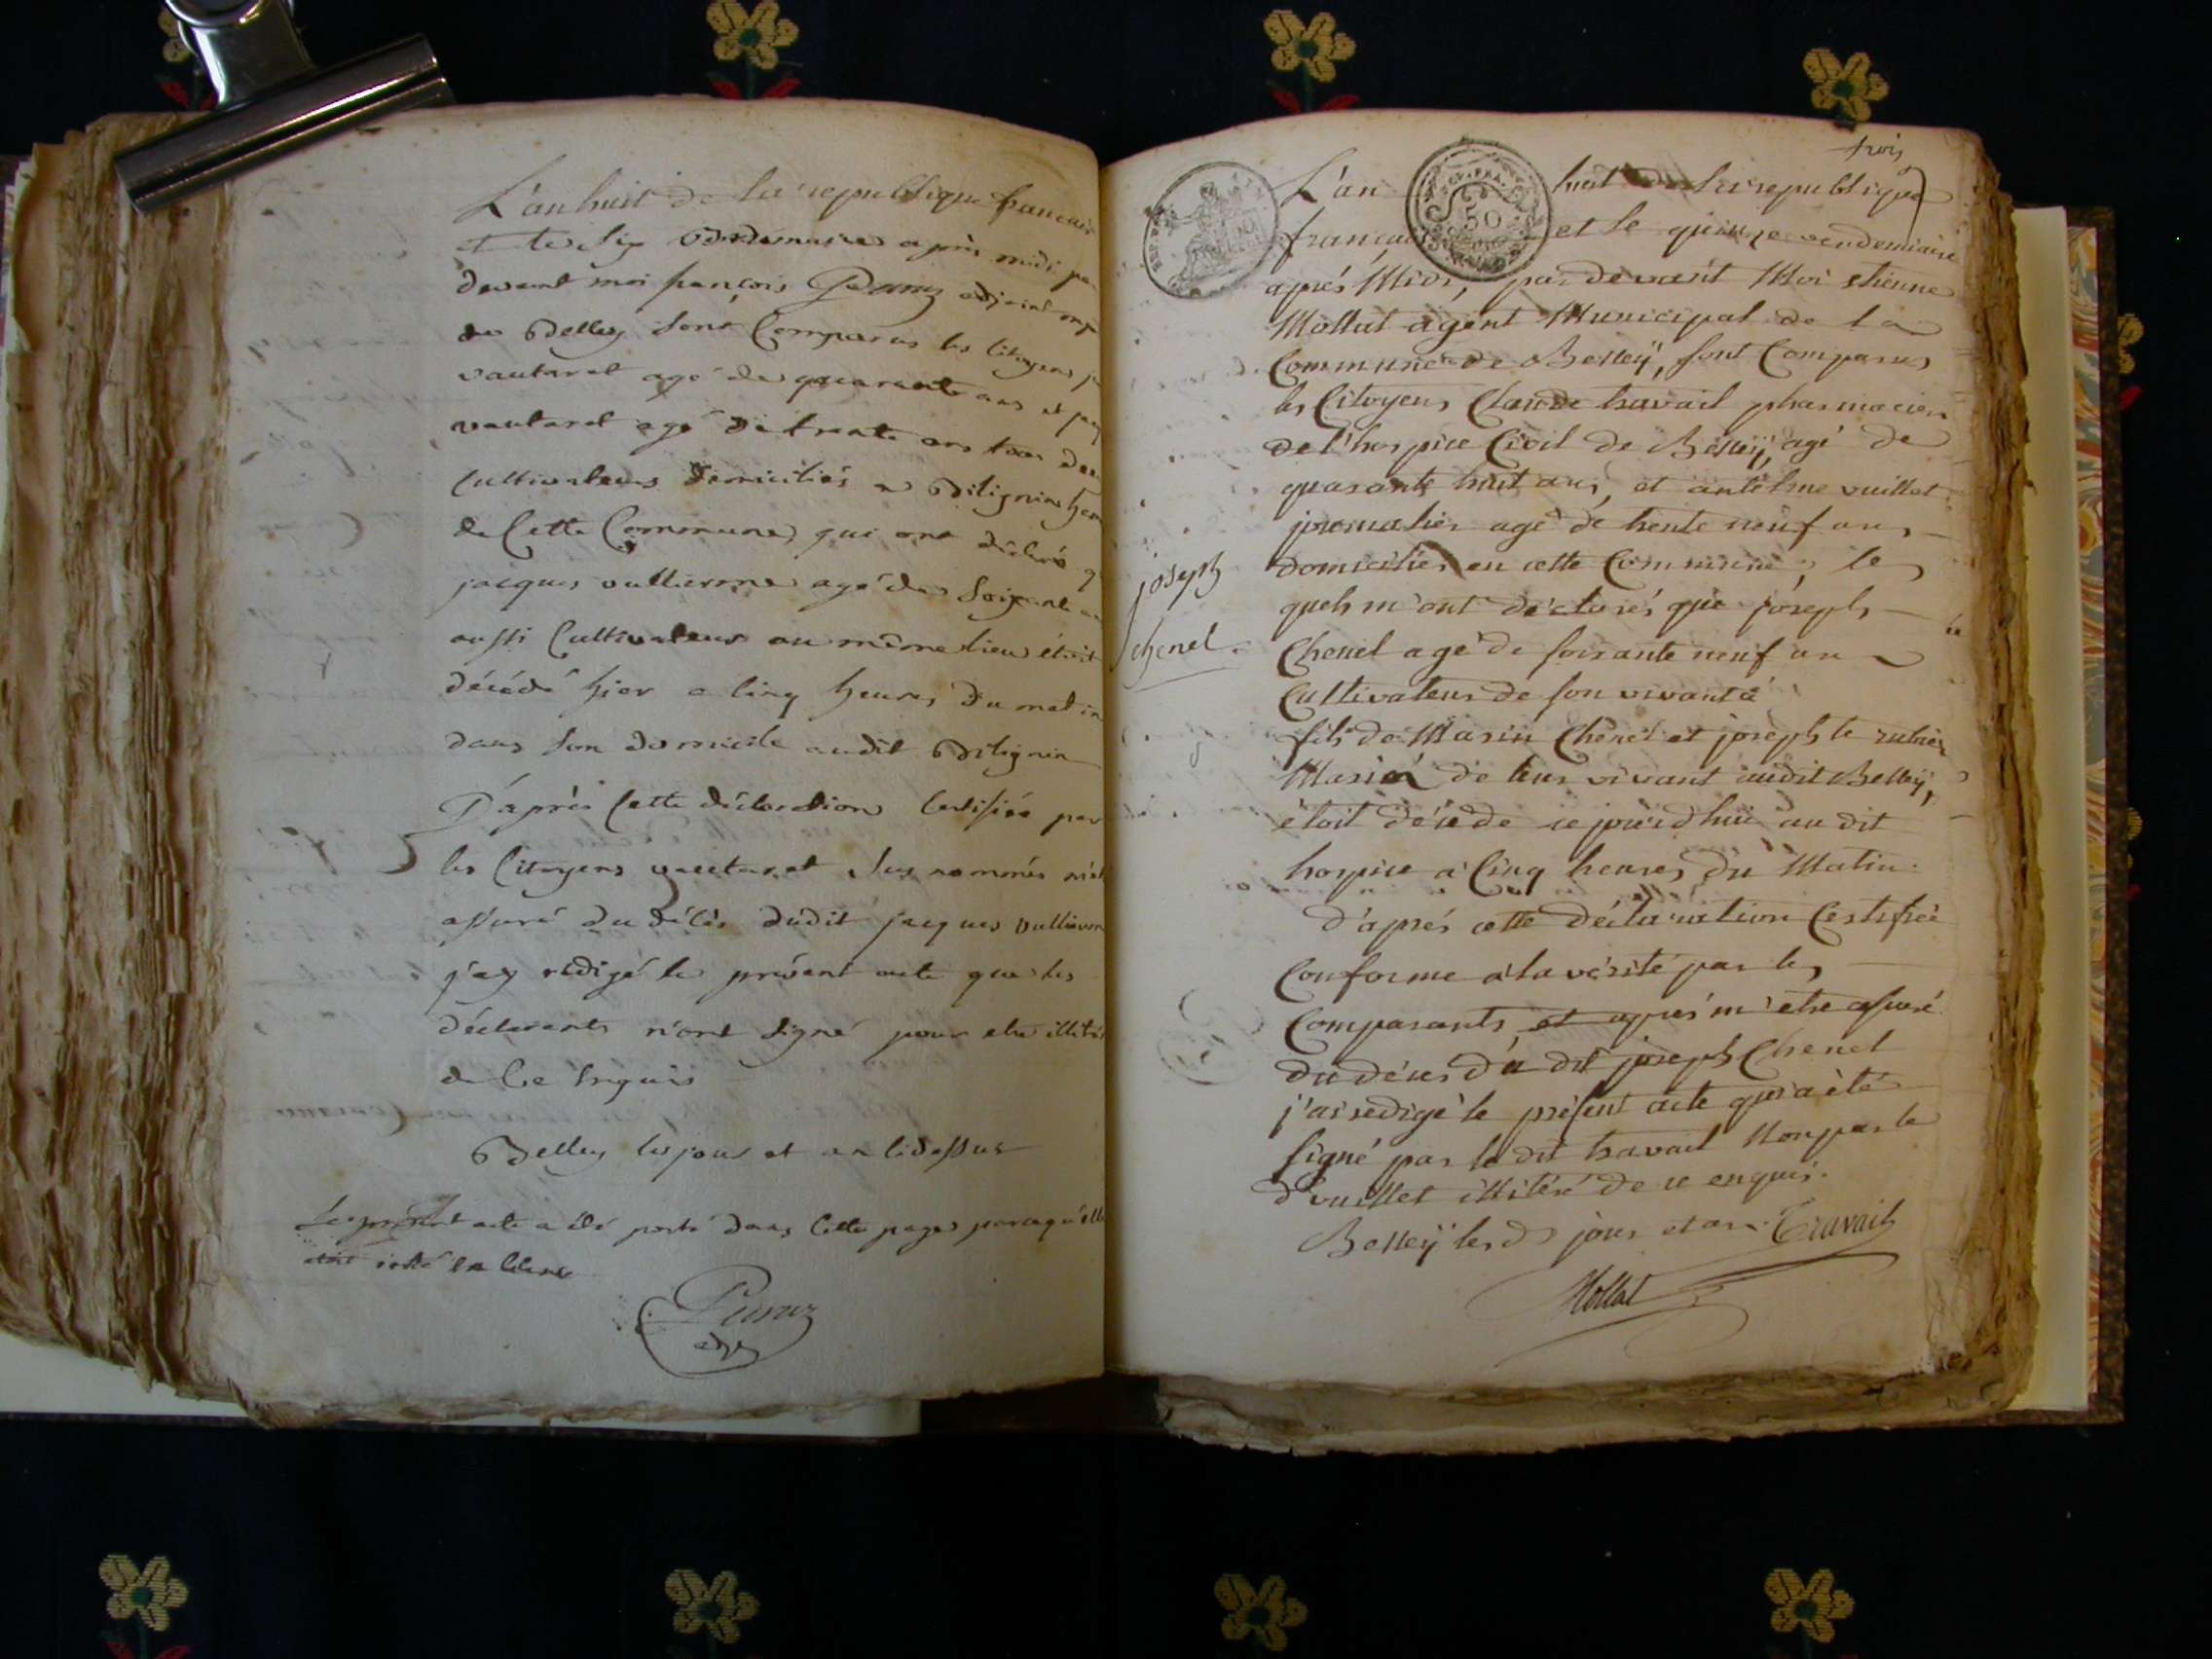 L'an huit de la republique francais
et le Six Vendemiaire après midi par
devant moi françois Peruz adjoint
de Belley Sont Comparus les Citoyens
vautaret agé de quarante ans et
vautaret agé de trante ans tous deux
Cultivateurs domiciliés a Bilignin
de Cette Commune, qui ont déclaré
jacques vullierme agé de Soixante
aussi Cultivateur au même lieu étoit
décédé hier a Cinq heures du matin
dans Son domicile audit Bilignin
D'après Cette déclaration Certifiée par
les Citoyens vautaret Sus nommés
assuré du décès dudit jacques vullierm
j'ay rédigé le présent acte que les
déclarants n'ont Signé pour etre illité
de Ce Enquis
Belley les jour et an Cidessus
Le présent acte a été porté dans Cette page parcequ'elle
étoit resté en blanc
Peruz
adj
trois
L'an huit de la republique
française et le quinze vendemiaire
après Midi, par devant Moi etienne
Mollat agent Municipal de la
Commune de Belleÿ, sont Comparus
les Citoyens Claude travail pharmacien
de l'hospice Civil de Belleÿ, agé de
quarante huit ans, et antelme vuillet
journalier agé de trente neuf ans
domiciliés en cette Commune, les
quels m'ont déclarés que joseph
joseph
chenel
Chenel agé de soixante neuf ans
Cultivateur de son vivant à
fils de Marin Chenel et josephte
Mariés de leur vivant audit Belleÿ,
étoit décédé ce jourdhui au dit
hospice à Cinq heures du Matin.
d'après cette déclaration Certifiée
Conforme à la vérité par les
Comparants, et après m'etre assuré
du décès du dit joseph Chenel
j'ai redigé le présent acte qui a été
signé par le dit travail Non par le
d' vuillet illitéré de ce enquis.
Belleÿ les d jour et an. Travail
Mollat
50